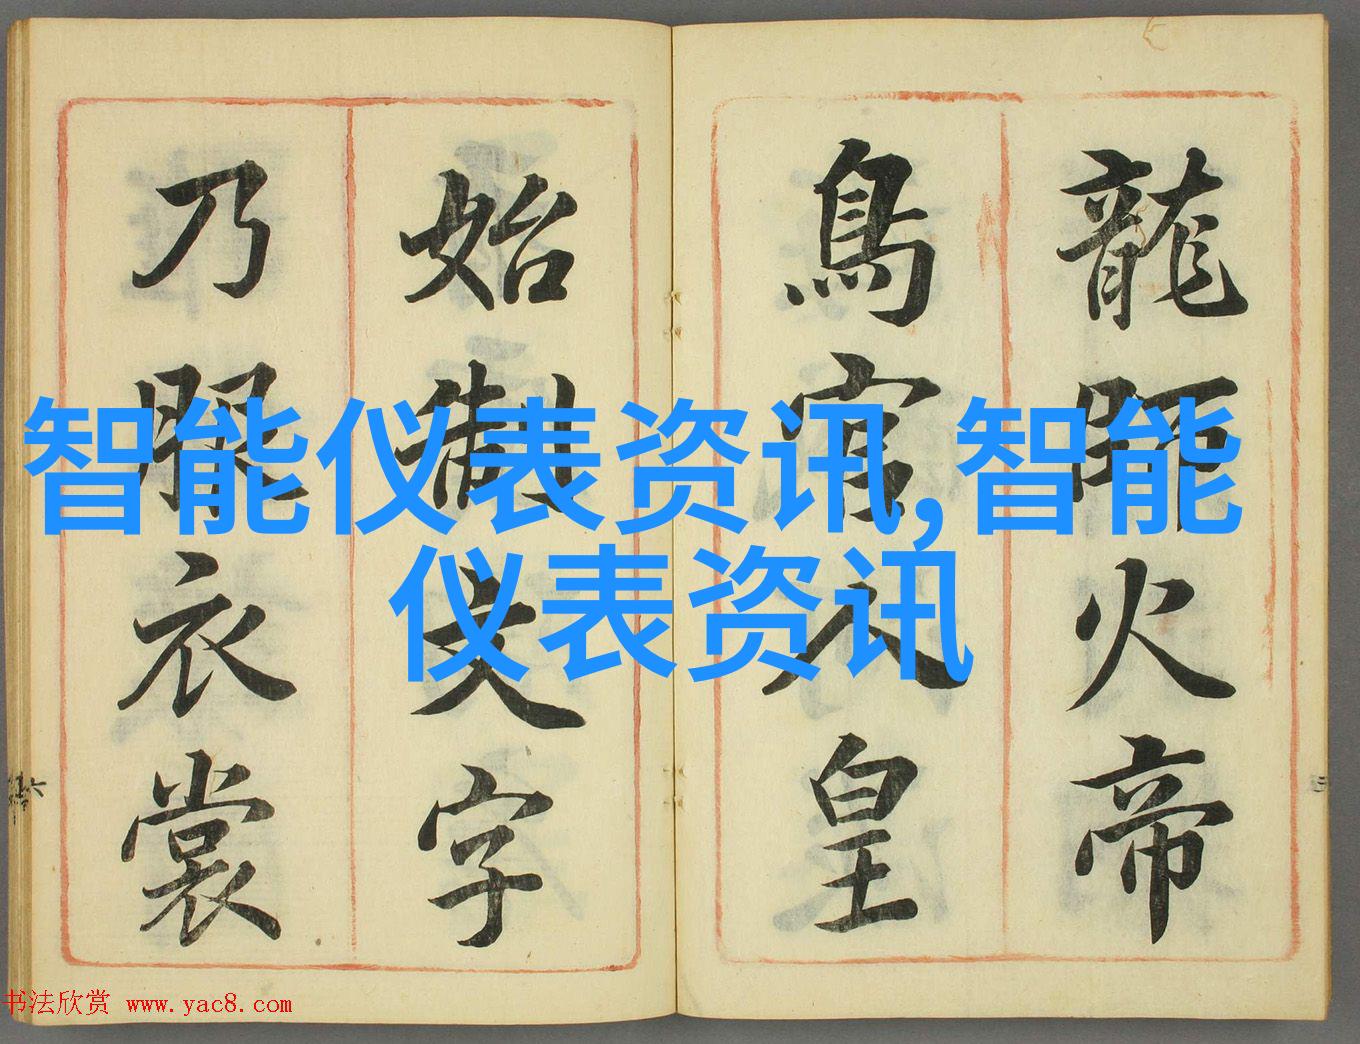 龍師火帝
鳥官人皇
始制文字
乃服衣裳
智能仪表资讯,智能
仪表资讯
书法欣赏 www.yac8.com